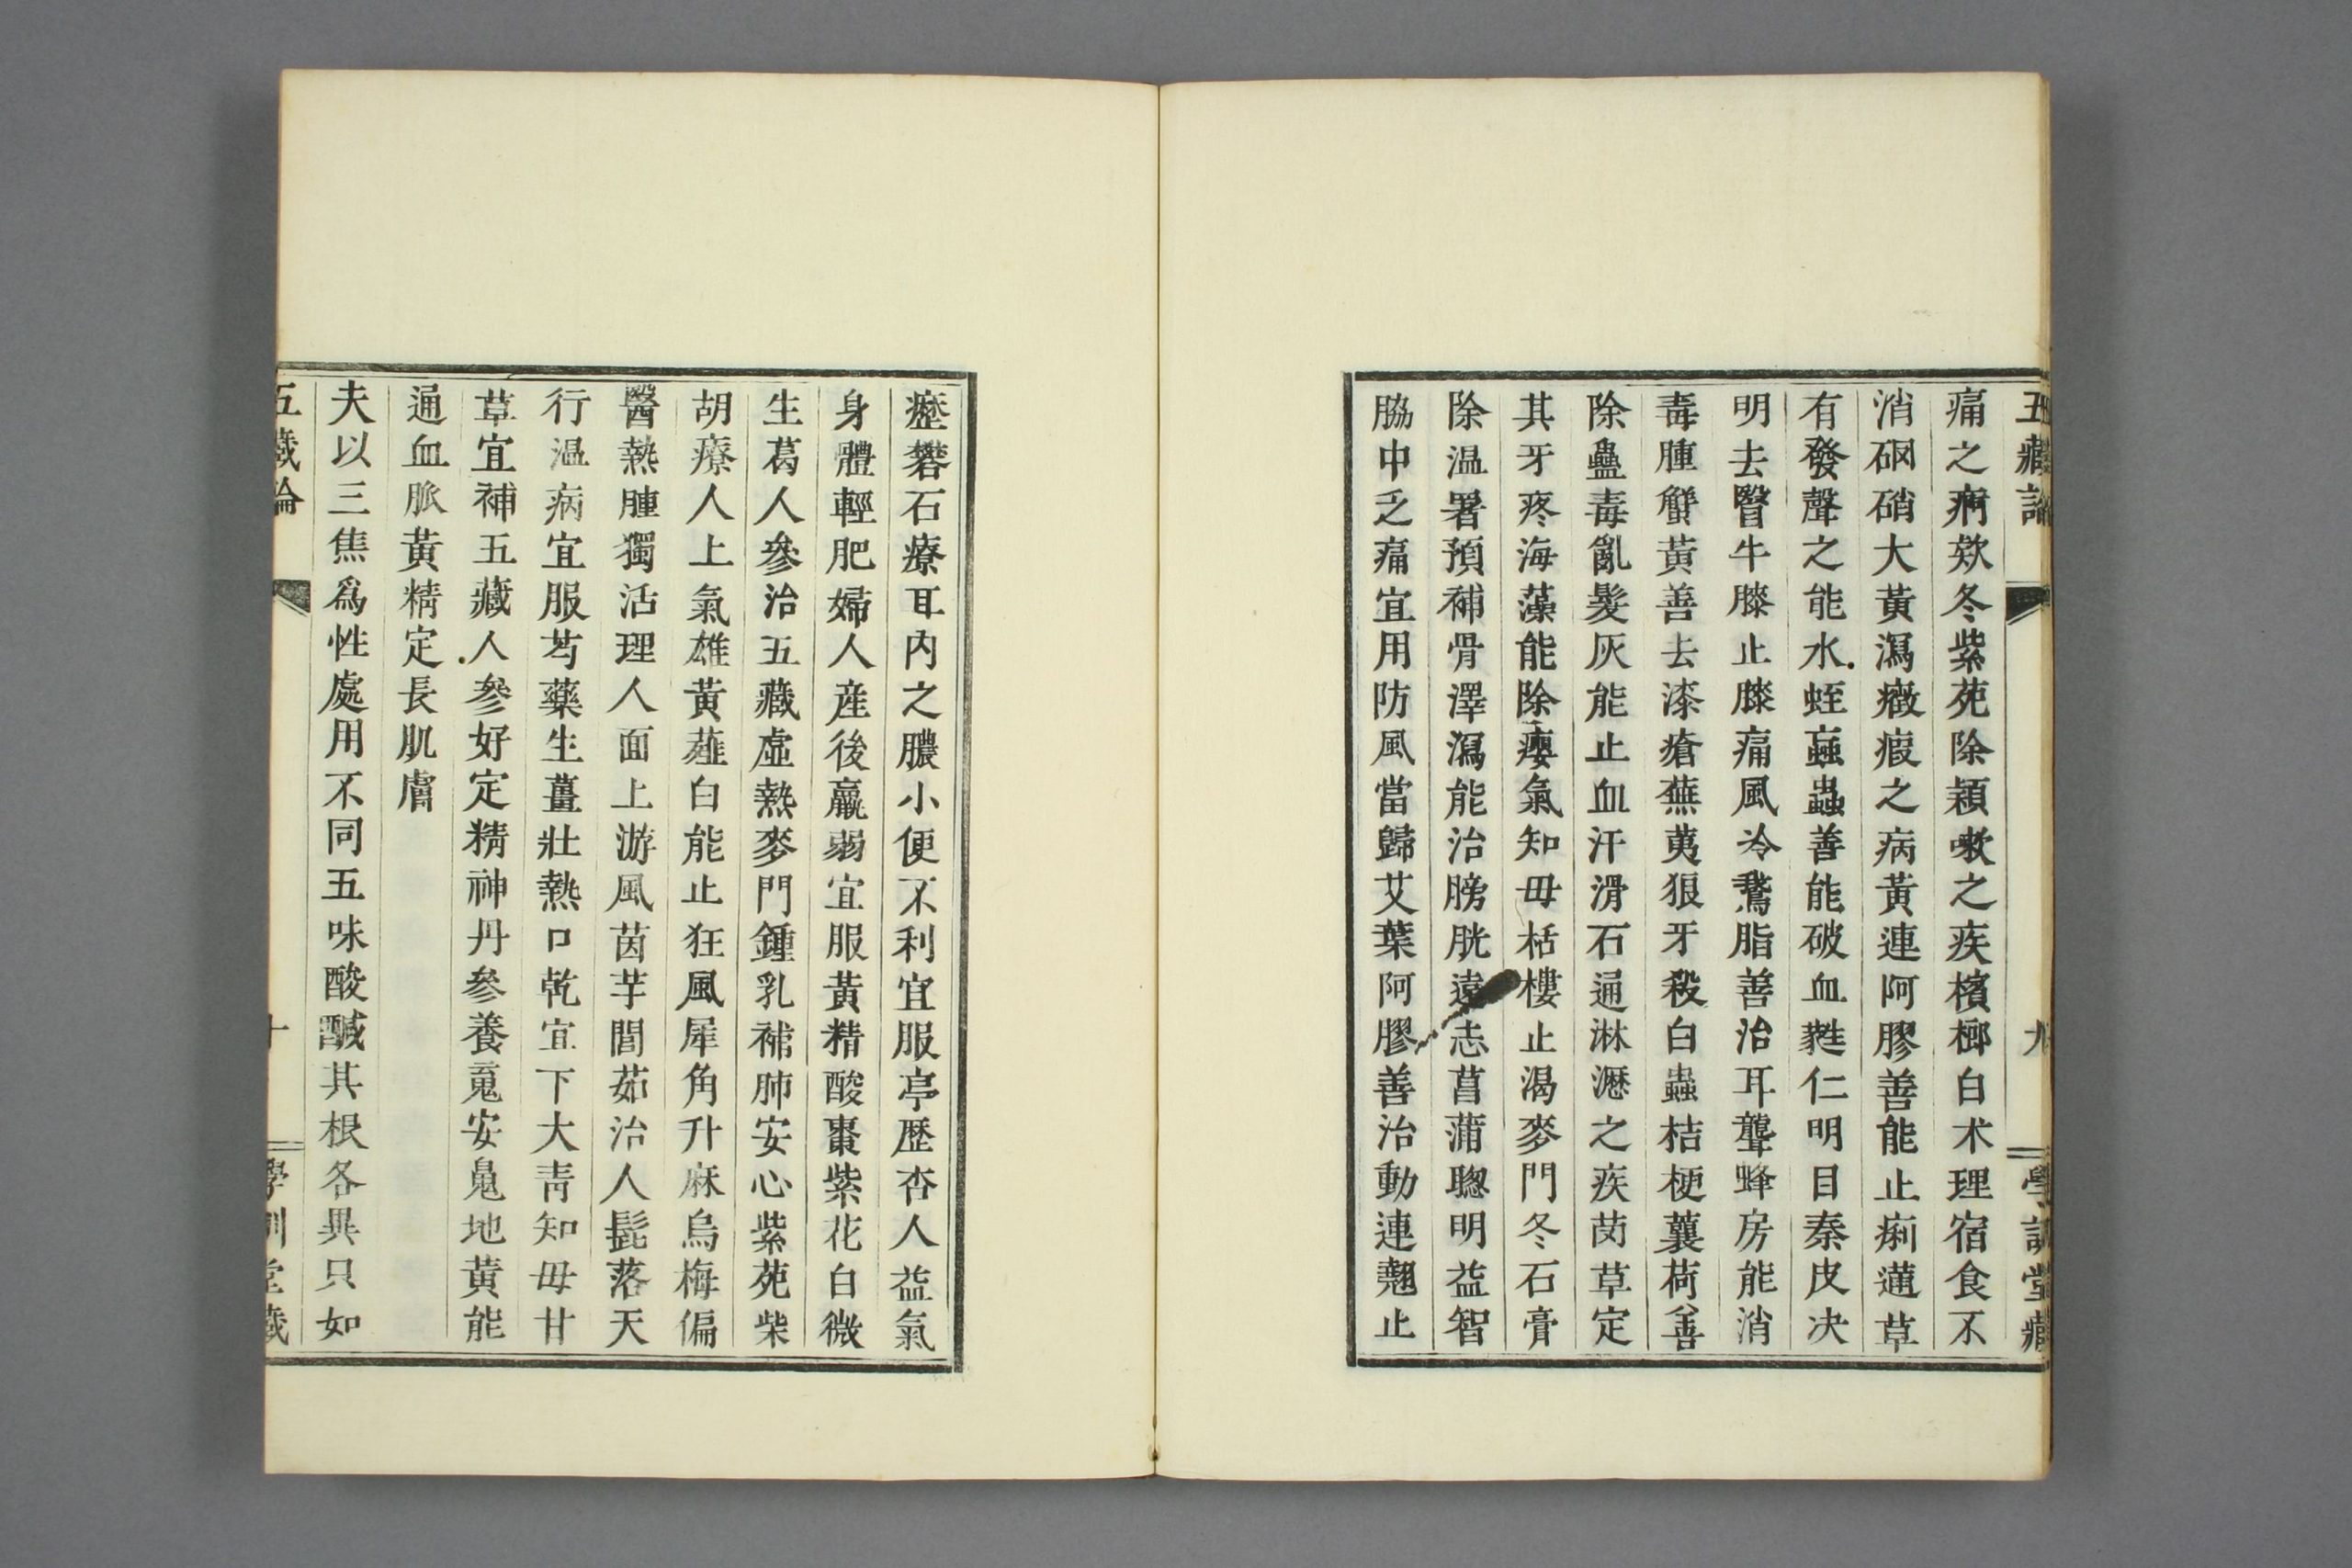 五藏論 九 學訓堂藏
痛之痾欬冬紫苑除潁嗽之疾檳榔白术理宿食不
消硇硝大黃瀉癥瘕之病黃連阿膠善能止痢蓪草
有發聲之能水蛭䖟蟲善能破血蕤仁明目秦皮决
明去瞖牛膝止膝痛風冷鵞脂善治耳聾蜂房能消
毒腫蟹黃善去漆瘡蕪荑狼牙殺白蟲桔梗蘘荷善
除蠱毒亂髮灰能止血汗滑石通淋瀝之疾茵草定
其牙疼海藻能除癭氣知毋栝樓止渴麥門冬石膏
除温暑預補骨澤瀉能治膀胱遠志菖蒲聰明益智
脇中乏痛宜用防風當歸艾葉阿膠善治動連翹止
癧礬石療耳内之膿小便不利宜服亭歷杏人益氣
身體輕肥婦人産後羸弱宜服黃精酸棗紫花白微
生葛人參治五藏虛熱麥門鍾乳補肺安心紫苑柴
胡療人上氣雄黃薤白能止狂風犀角升麻烏梅偏
醫熱腫獨活理人面上游風茵芋閭茹治人髭落天
行温病宜服芍藥生薑壯熱口乾宜下大靑知毋甘
草宜補五藏人參好定精神丹參養䰟安鬿地黃能
通血脈黃精定長肌膚
夫以三焦爲性處用不同五味酸醎其根各異只如
五藏論 十 學訓堂藏